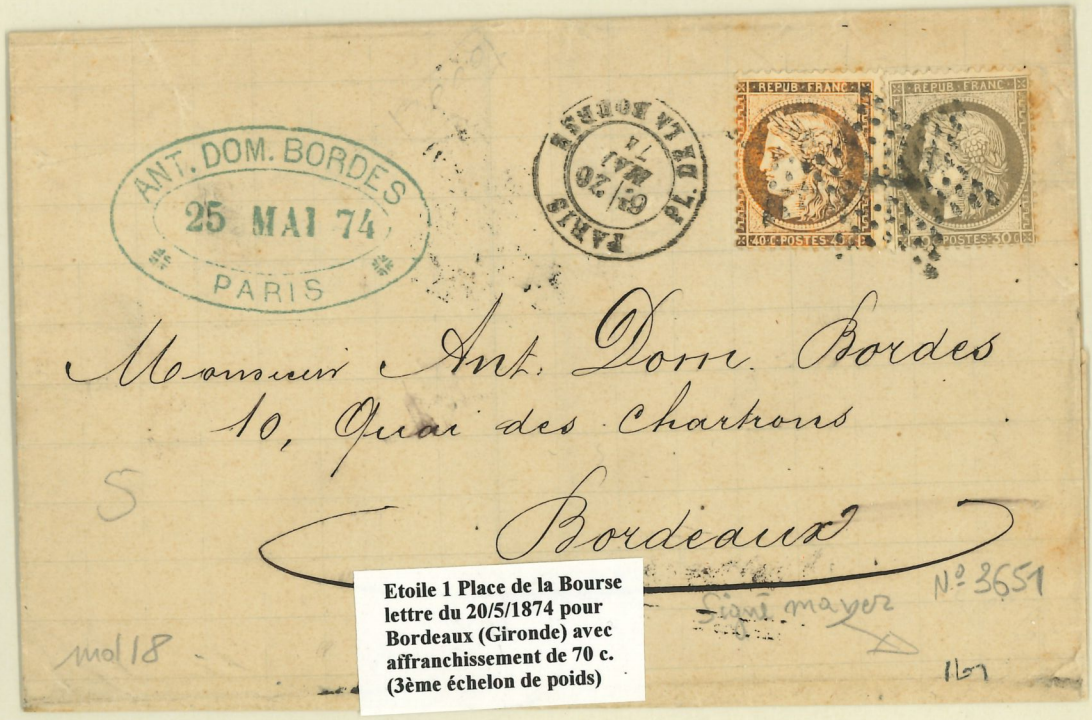 ANT. DOM. BORDES
25 MAI 74
PARIS
PARIS PL. DE LA BOURSE
6E/ 20
MAI
74
REPUB. FRANC.
40 C. POSTES 40 C.
REPUB. FRANC.
POSTES 30 C.
Monsieur Ant. Dom. Bordes
10, Quai des Chartrons
Bordeaux
5
Etoile 1 Place de la Bourse
lettre du 20/5/1874 pour
Bordeaux (Gironde) avec
affranchissement de 70 c.
(3ème échelon de poids)
Nº 3651
Signé mayer
mol 18